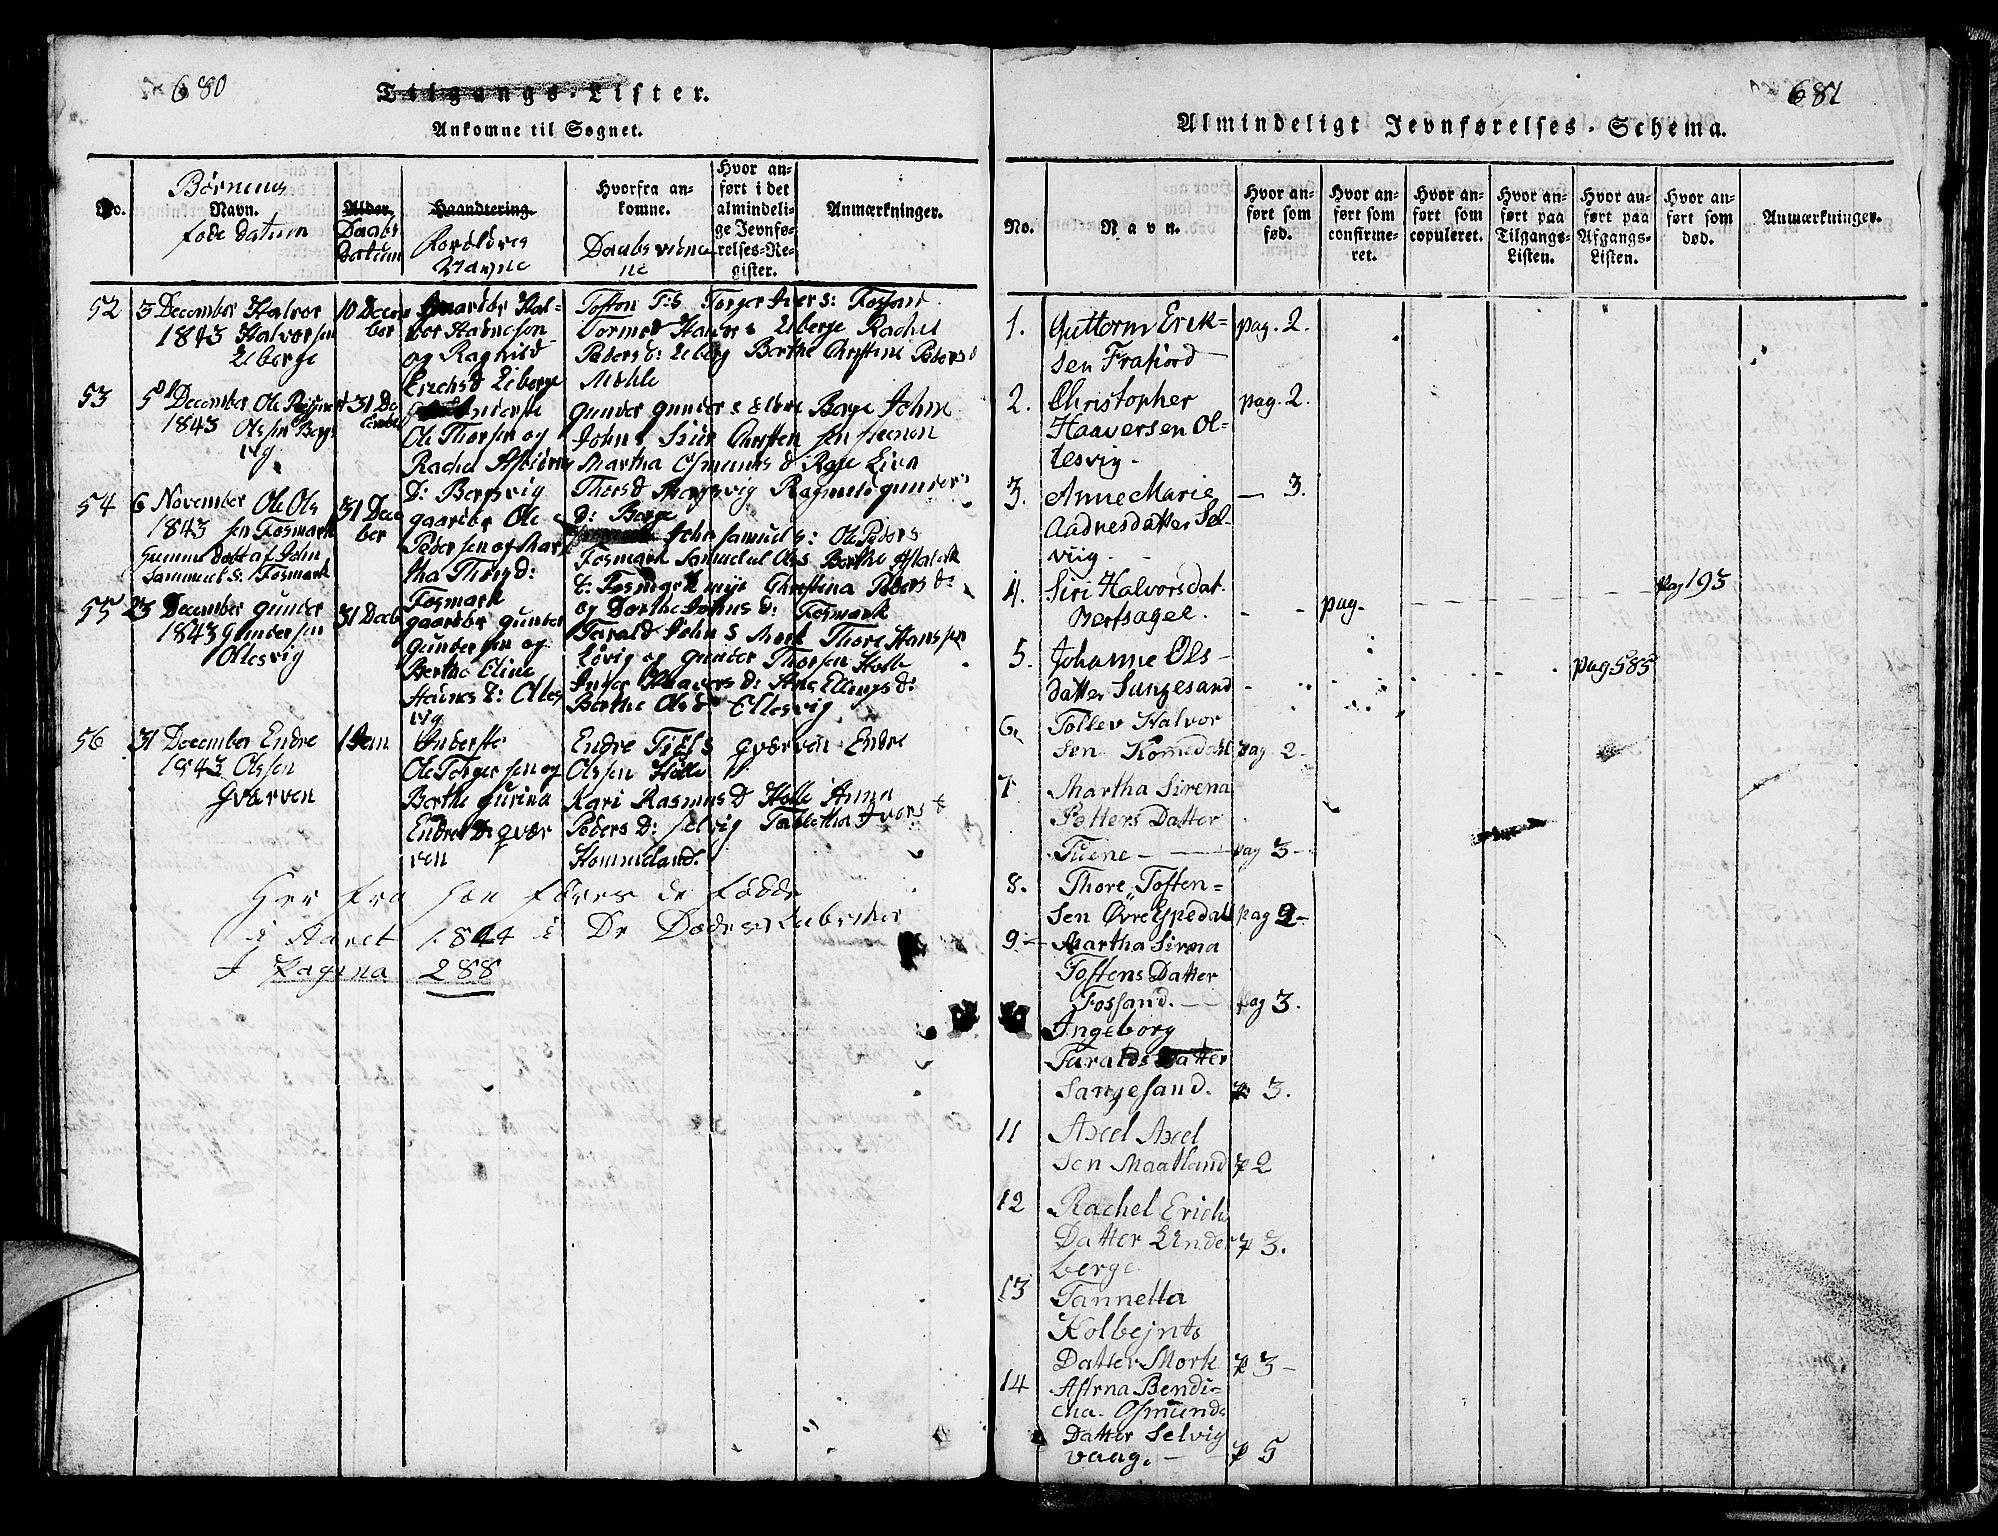 680
Tilgangs-Lister.
Ankomne til Sognet.
No.
Børnenes
Navn.
føde datum
Alder.
Daabs
datum
Haandtering.
Forældres
Navne
Hvorfra an-
komne.
Daabsvidne
ne
Hvor an-
ført i det
almindeli-
ge Jevnfø-
relses-Re-
gister.
Anmærkninger.
52 3 December Halvor
1843 Halvorsen
Eiberge
10 Decem
ber
Gaardbr Hal-
vor
og Ragnild
Erichs d Eiberge
Tosten T:s Torger Iver s: Fossand
Eiberge Rachel
Peders d: Eiberg Berthe Chrstine Peders d
Mæhle
53 5 December Ole
1843 Olssen Bergs
vig
31 De
cember
Inderste
Ole Thorsen og
Rachel
D: Bergsvig
gunder gunders Berge John
Johns Chrsten sen
Martha Osmunds d Rage Liva
Thors d Bergsvig Ragnele gunders
d: Berge
54 6 November Ole Ols
1843 sen Fosmark
Samuel s: Fosmark
31 Dec
ber
gaardbr Ole
Pedersen og Mar
tha Thors d:
Fosmark
John Samuel s: Ole Peders
Fosmark Samuel Ols Berthe
d: Fosmark Christina Peders d:
og Dorthe Johns d: Fosmark
55 23 December gunder
1843 Gundersen
Ollesvig
31 Decb
gaardbr gunder
gundersen og
Berthe Eline
d: Olles
vig
Tarald John s Mork Thore Hanssen
Løvig og gunder Thorsen Holle
Inger Haavers d: Ane Ellings d:
Berthe Ols d Ollesvig
56 31 December Endre
1843 Olssen
Qværven
1 Jan
Inderste
Ole Torgersen og
Berthe gurina
Endre D: qvær
ven
Endre qværven Endre
Olssen Holle
Kari Rasmus d Holle Anna
Peders D: Selvig Tabletha Ivers d
Hommeland.
Her fra føres de fødde
i Aaret 1844 i De Dødes Rubriker
I Pagina 288
681
Almindeligt Jevnførelses-Schema.
No.
Navn.
Hvor an-
ført som
fød.
Hvor an-
ført som
confirme-
ret.
Hvor an-
ført som
copuleret.
Hvor an-
ført paa
Tilgangs-
Listen.
Hvor an-
ført paa
Afgangs-
Listen.
Hvor an-
ført som
død.
Anmærkninger.
1. Guttorm Erik- pag. 2.
sen Frafiord
2. Christopher pag. 2.
Haaversen Ol-
lesvig -
3. Anne Marie - 3.
Aadnesdatter Sel-
viig -
4. Siri Halvorsdat. pag 193
Bersagel. - - pag -
5. Johanne Ols- pag. 585
datter Sungesand -
6. Tollev Halvor
sen Komedahl pag 2-
7 Martha Sirena
Petters Datter
Tuene - pag 3-
8. Thore Tosten-
sen Øvre Espedal pag 2-
9. - Martha Sirma
Tostens Datter
Fossand. - pag 3.
Ingeborg
Taralds Datter
Sangesand. p 3.
11 Axel Axel
sen Maatland p 2
12 Rachel Erichs
Datter Eiinder p 3.
berge
13 Tannetta
Kolbejnts
Datter Mork p 3-
14 Astrna Bendi-
cha. Osmunds
Datter Selvig
vaag. - p 5